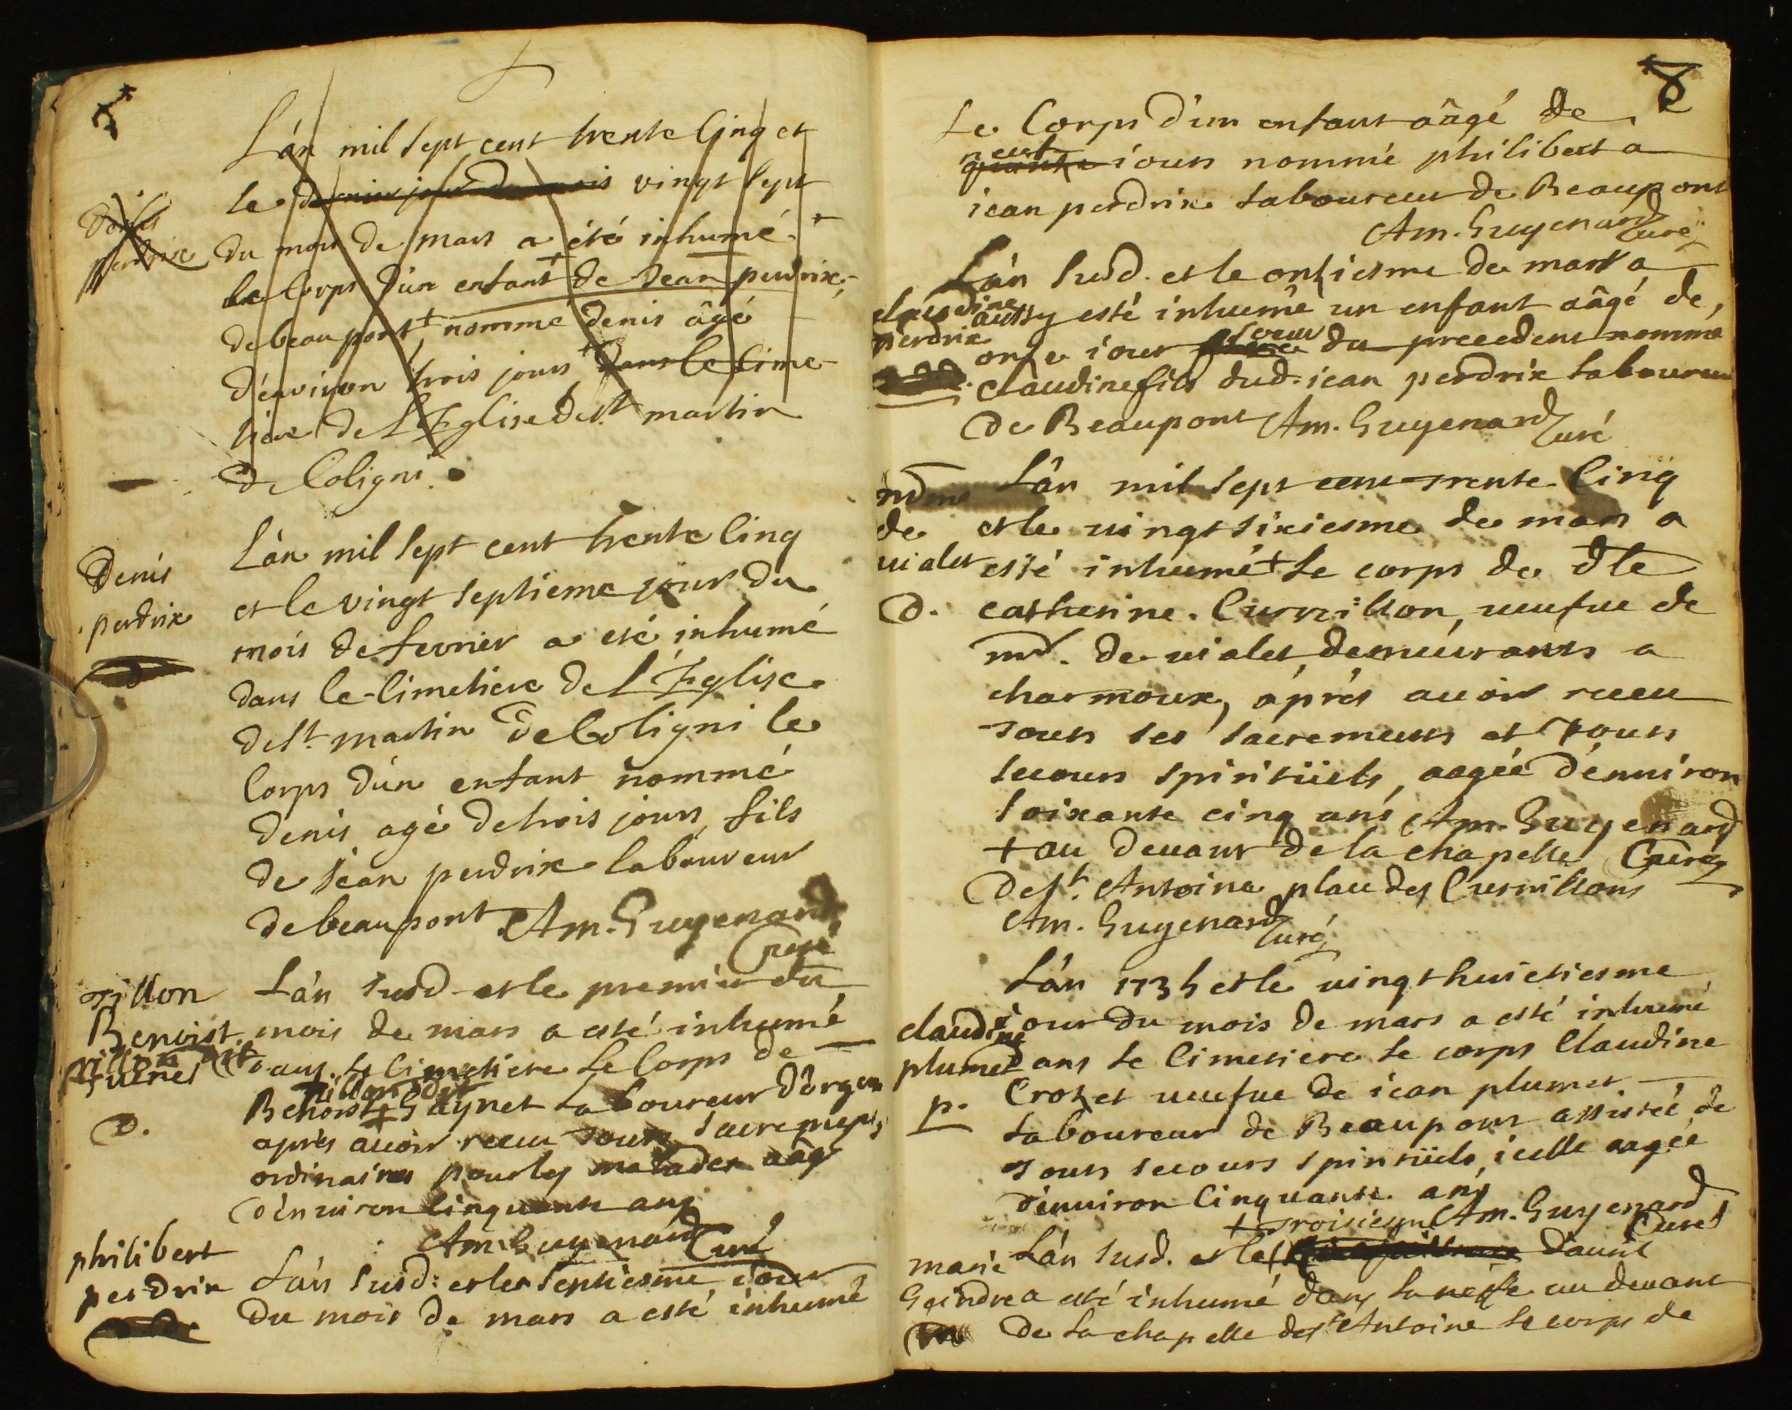 L'án mil sept cent trente Cinq et
le vingt sept
Denis
perdrix
du mois de mars a été inhumé
le Corps d'ún enfant de Jean perdrix
de beaupont nommé denis âgé
d'environ trois jours dans le Cime-
tiere de L'Eglise de st martin
de Coligni.
L'án mil sept cent trente Cinq
Denis
perdrix
et le vingt septieme jour du
mois de fevrier a eté inhumé
dans le Cimetiere de L'Eglise
de st. martin de Coligni le
Corps d'ún enfant nommé
denis agé de trois jours, fils
de Jean perdrix laboureur
de beaupont. Am. Guyenard
Curé
Tillon
Benoist
L'án susd et le premier du
mois de mars a esté inhumé
dans le Cimetiere le Corps de
Tillon dit
D.
Benoist + Guynet laboureur
après avoir receu tous sacrements
ordinaires pour les malades aâgé
d'énuiron Cinquante ans
Am. Guyenard Curé
philibert
perdrix
L'án susd: et le septiesme jour
du mois de mars a esté inhumé
8
Le Corps d'un enfant aâgé de
neuf
iours nommé philibert a
iean perdrix laboureur de Beaupont
Am. Guyenard Curé
L'án susd. et le onziesme de mars a
claudine
perdrix
aussy esté inhumé un enfant aâgé de
onze iour soeur du precedent nommé
claudine fils dud. iean perdrix laboureur
de Beaupont Am. Guyenard Curé
L'án mil sept cent trente Cinq
de
uialet
et le uingt sixiesme de mars a
esté inhumé + le corps de dle
D.
catherine. Curnillon, ueufue de
mr. de uialet, demeurants a
charmoux, áprés auoir receu
tous les sacrements et tous
secours spiritüels, aagée d'énuiron
soixante cinq ans Am. Guyenard
Curé
+ au deuant de la chapelle
de st. Antoine plau des Curnillons
Am. Guyenard Curé
L'án 1735 et le uingt huictiesme
claudine
plumet
p.
iour du mois de mars a esté inhumé
dans le Cimetiere le corps Claudine
Crozet ueufue de iean plumet
laboureur de Beaupont assistée de
tous secours spiritüels, icelle aagée
d'énuiron Cinquante ans
Am. Guyenard
Curé
+ troisiesme
marie
Gindre
L'án susd. et le d'auril
a esté inhumé dans la nefe au deuant
de la chapelle de st Antoine le corps de